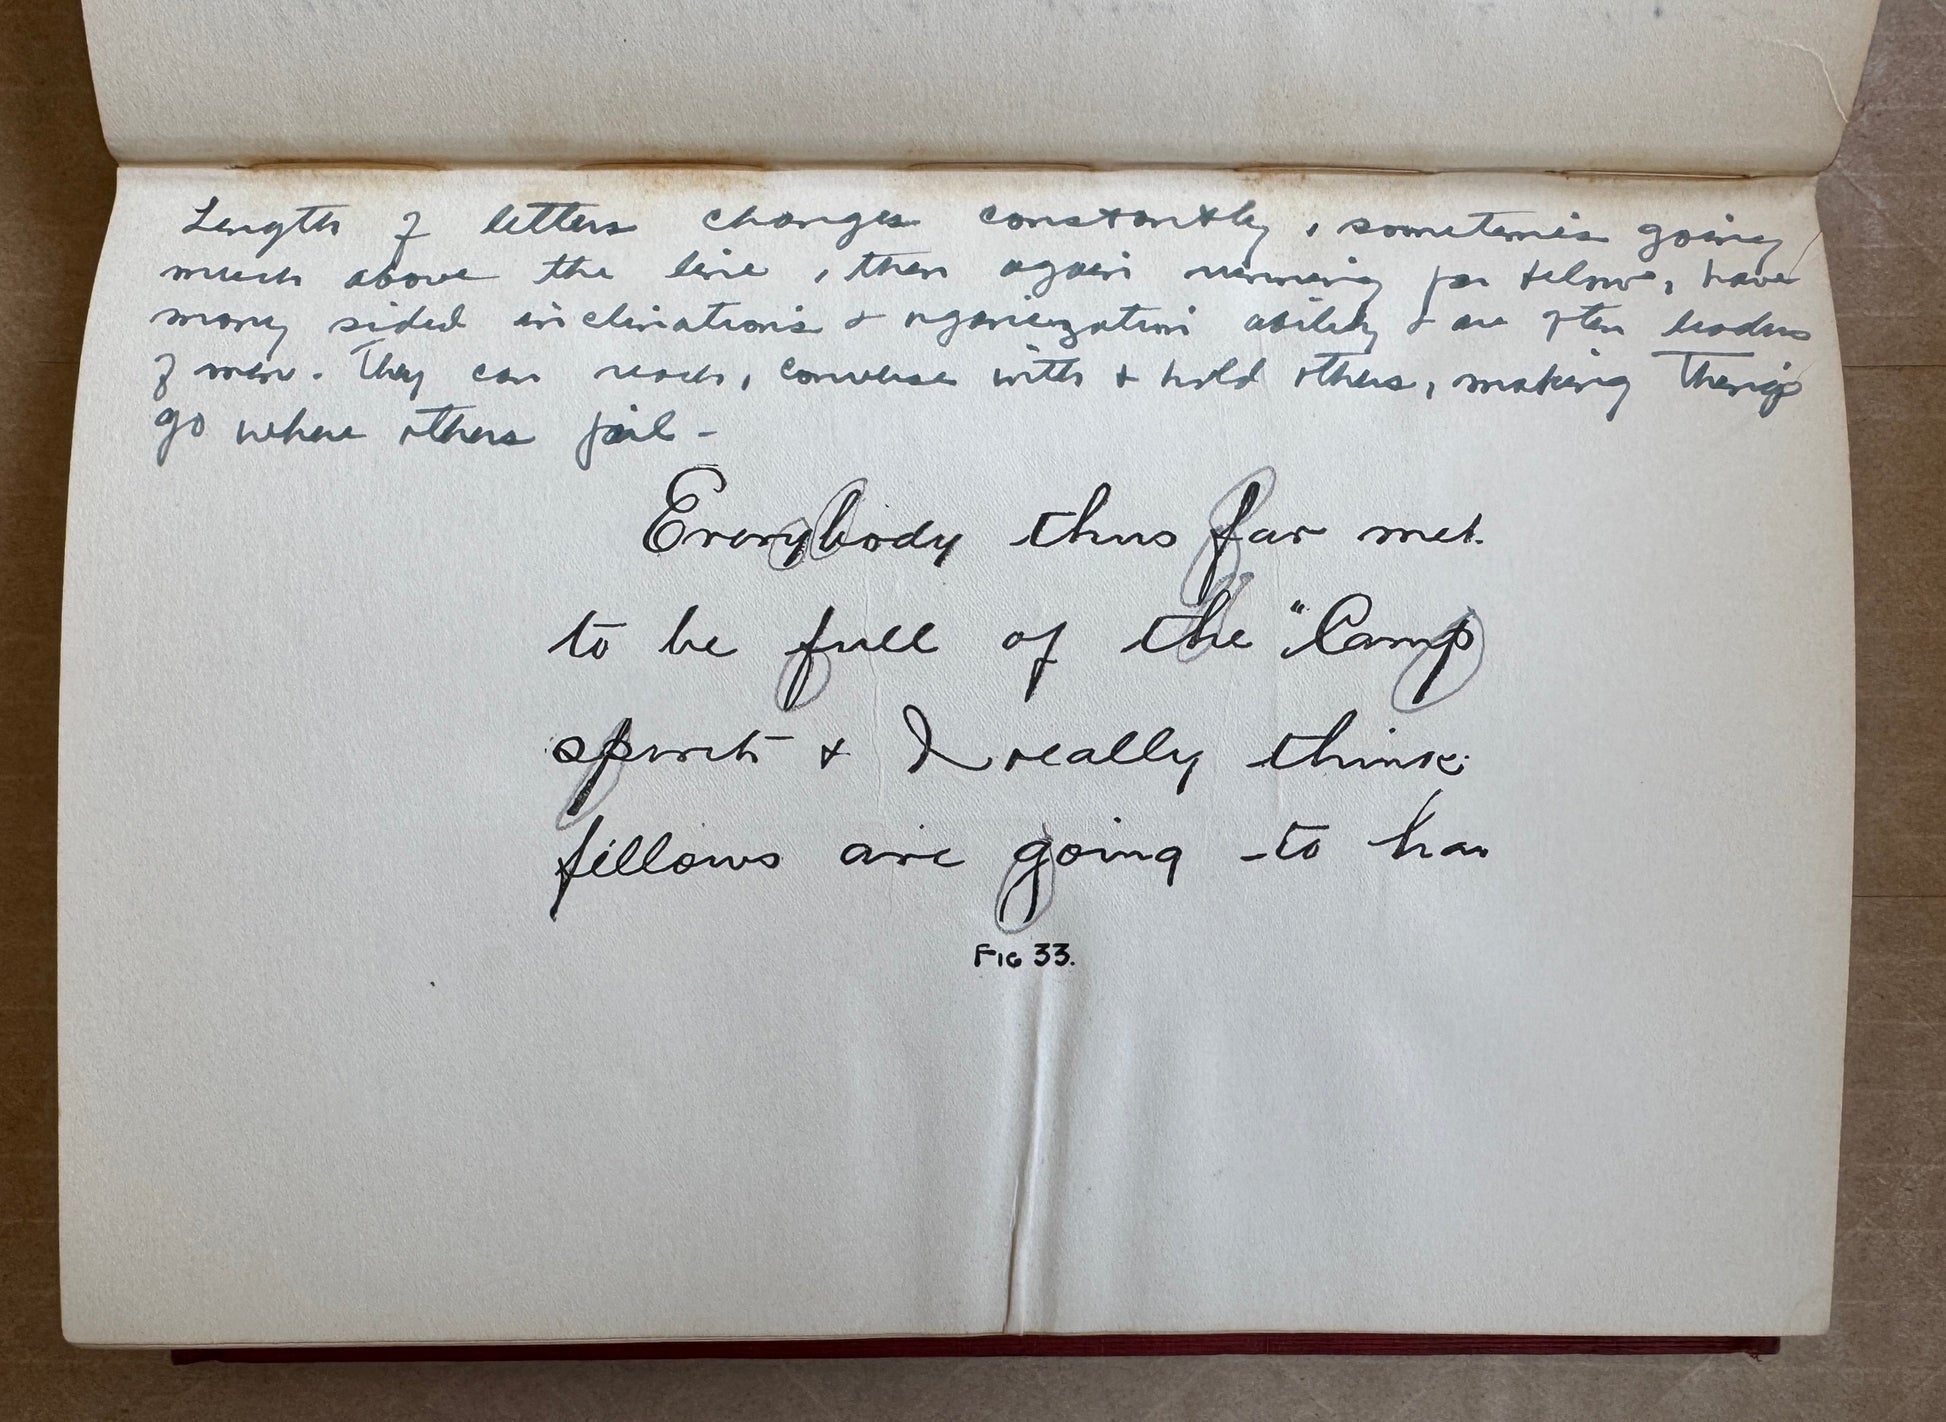 Length of letters changes constantly, sometimes going
much above the line, then again running far below, have
many sided inclinations & organization ability & are often leaders
of men. They can reach, converse with & hold others, making things
go where others fail -
Everybody thus far met
to be full of the "Camp
spirit & I really think
fellows are going to hav
FIG 33.